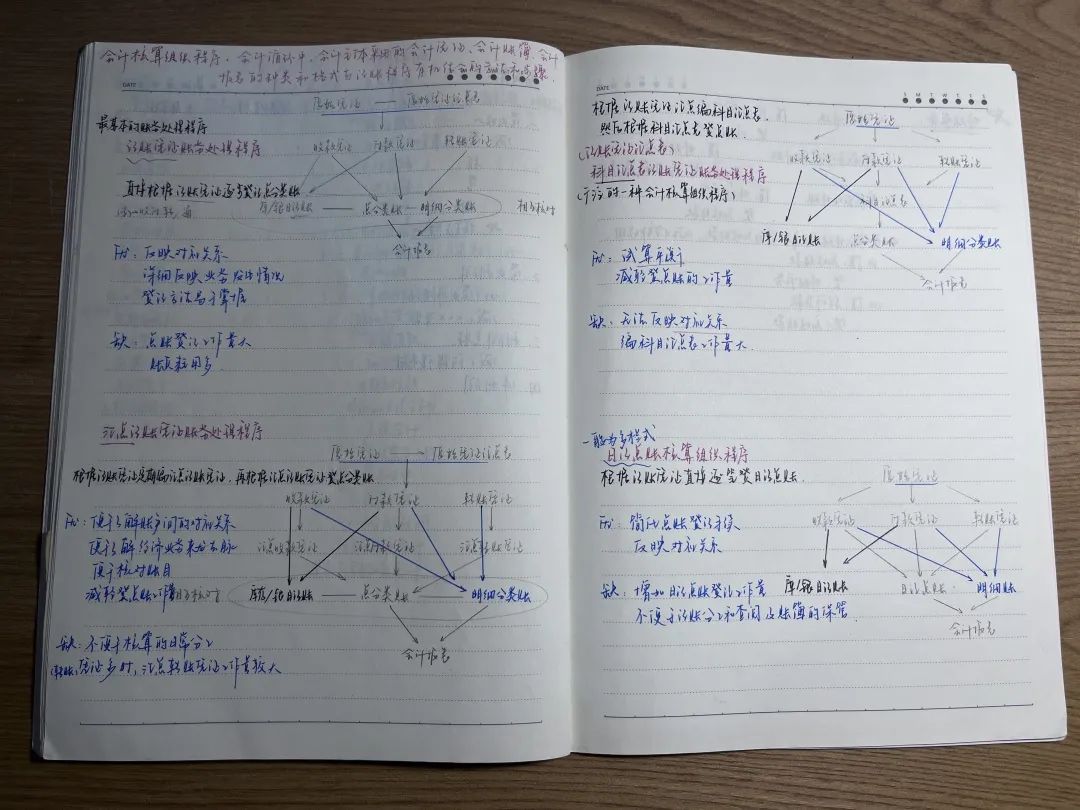 会计核算组织程序:会计循环中,会计主体采用的会计凭证、会计账簿、会计
报表的种类和格式与记账程序有机结合的方法和步骤.
DATE
原始凭证 — 原始凭证汇总表
最基本的账务处理程序
记账凭证账务处理程序
收款凭证 付款凭证 转账凭证
直接根据记账凭证逐笔登记总分类账
库/银日记账 — 总分类账 — 明细分类账 相互核对
会计报表
优:反映对应关系
详细反映业务发生情况
登记方法易于掌握
缺:总账登记工作量大
账页耗用多.
汇总记账凭证账务处理程序
原始凭证 → 原始凭证汇总表
根据记账凭证定期编汇总记账凭证,再根据汇总记账凭证登总分类账
收款凭证 付款凭证 转账凭证
优:便于了解账户间的对应关系
便于了解经济业务来龙去脉
便于核对账目
减轻登总账工作量
汇总收款凭证 汇总付款凭证 汇总转账凭证
相互核对
库存/银日记账 — 总分类账 — 明细分类账
会计报表
缺:不便于核算的日常分工
(转账)凭证多时,汇总转账凭证工作量较大
DATE
S M T W T F S
根据记账凭证汇总编科目汇总表.
然后根据科目汇总表登总账.
原始凭证
(记账凭证汇总表)
科目汇总表记账凭证账务处理程序
(广泛的一种会计核算组织程序)
收款凭证 付款凭证 转账凭证
科目汇总表
库/银日记账 总分类账 明细分类账
会计报表
优:试算平衡
减轻登总账的工作量
缺:无法反映对应关系
编科目汇总表工作量大.
一般为多栏式
日记总账核算组织程序
根据记账凭证直接逐笔登日记总账.
原始凭证
收款凭证 付款凭证 转账凭证
优:简化总账登记手续
反映对应关系
缺:增加日记总账登记工作量
不便于记账分工和查阅及账簿的保管
库存/银日记账 日记总账 明细账
会计报表